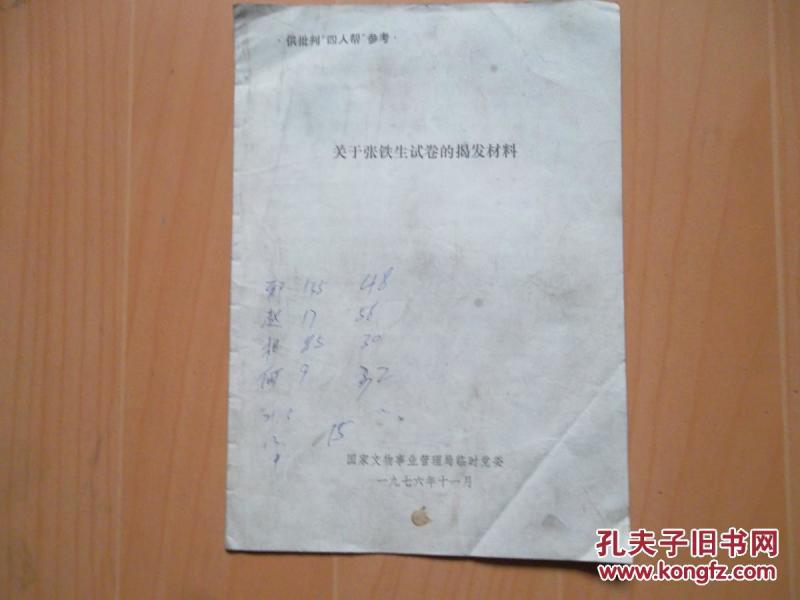 ·供批判“四人帮”参考·
关于张铁生试卷的揭发材料
135 48
赵 17 56
85 30
何 9 32
15
国家文物事业管理局临时党委
一九七六年十一月
孔夫子旧书网
www.kongfz.com